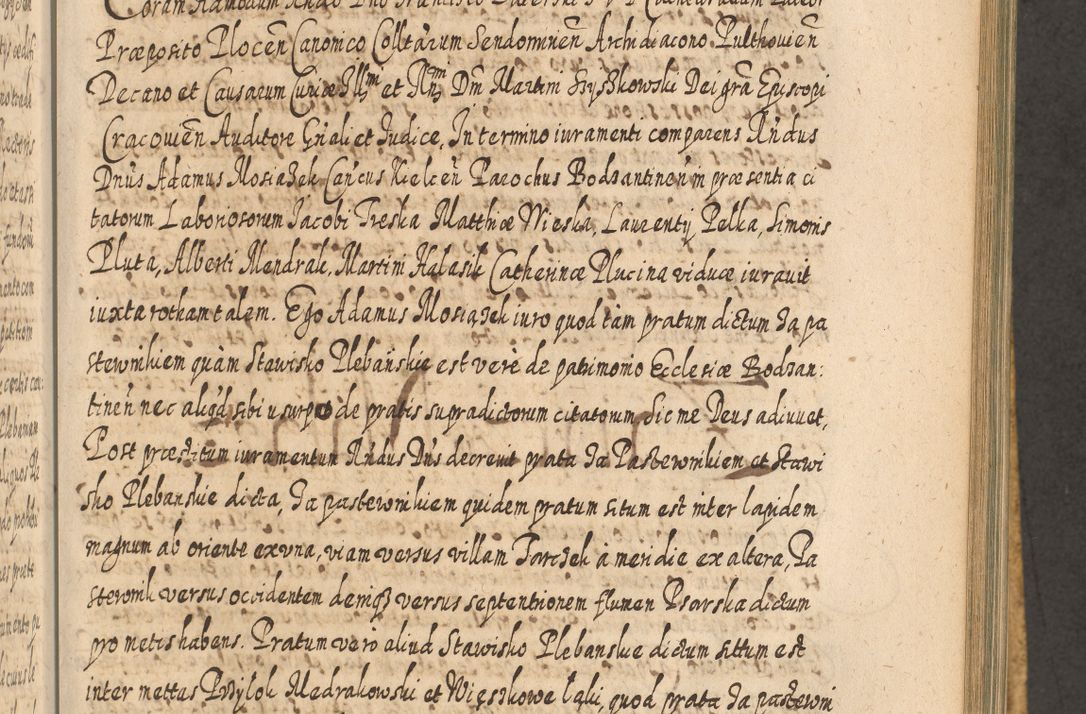 Coram Admodum Rndo Dno Francisco
Præposito Plocen̄ Canonico Colltarum Sendomirien̄ Archidiacono Pulthovien̄
Decano et Causarum Curiæ Illmi et Rmi Dni Martini Szyszkowski Dei grā Episcopi
Cracovien̄ Auditore Gn̄ali et Judice, In termino iuramenti comparens Rndus
Dnūs Adamus Mosiążek Can̄cus Kielcen̄ Parochus Bodzantinen̄ in præsentia ci
tatorum Laboriosorum Jacobi Treska Matthiæ Wieska, Laurentij Pełka, Simonis
Pluta, Alberti Mendrale, Martini Halasik Catherinæ Plucina viduæ iuravit
iuxta rotham talem. Ego Adamus Mosiązek iuro quod tàm pratum dictum Za pa
stewnikiem quàm Stawisko Plebańskie est verè de patrimonio Ecclesiæ Bodzan:
tinen̄ nec aliqd sibi usurpo de pratis supradictorum citatorum Sic me Deus adiuvet,
Post præstitum iuramentum Rndus Dn̄s decrevit prata Za Pastewnikiem et Stawi
sko Plebanskie dicta, Za pastewnikiem quidem pratum situm est inter lapidem
magnum ab oriente ex una, viam versus villam Tarczek à meridie ex altera, Pa
stewnik versus occidentem deniqȝ versus septentrionem flumen Psarska dictum
pro metis habens. Pratum vero aliud Stawisko Plebanskie dictum situm est
inter mettas Przyłok Mędrakowski et Więszkowe łąki, quod prata Za pastewni